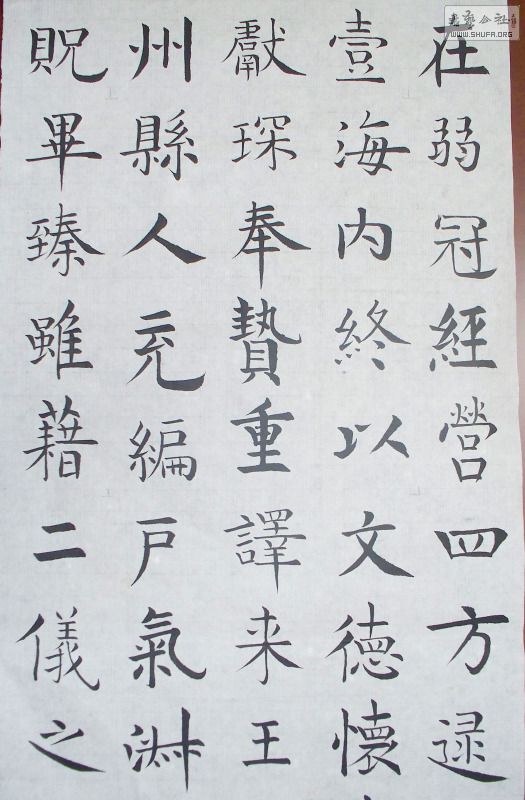 在弱冠經營四方逮
壹海内終以文德懷
獻琛奉贄重譯来王
州縣人充編戶氣淑
貺畢臻雖藉二儀之
書藝公社
WWW.SHUFA.ORG